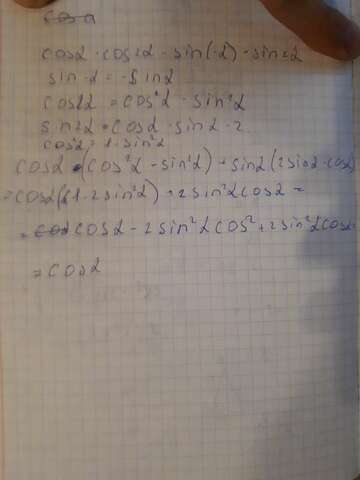 cos α
cosα · cos2α - sin(-α) · sin2α
sin -α = -sinα
cos2α = cos²α - sin²α
sin2α = cosα · sinα · 2
cos²α = 1 - sin²α
cosα · (cos²α - sin²α) + sinα (2sinα · cosα)
= cosα(1 - 2sin²α) + 2sin²α cosα =
= cosα - 2sin²α cos² + 2sin²α cosα
= cosα